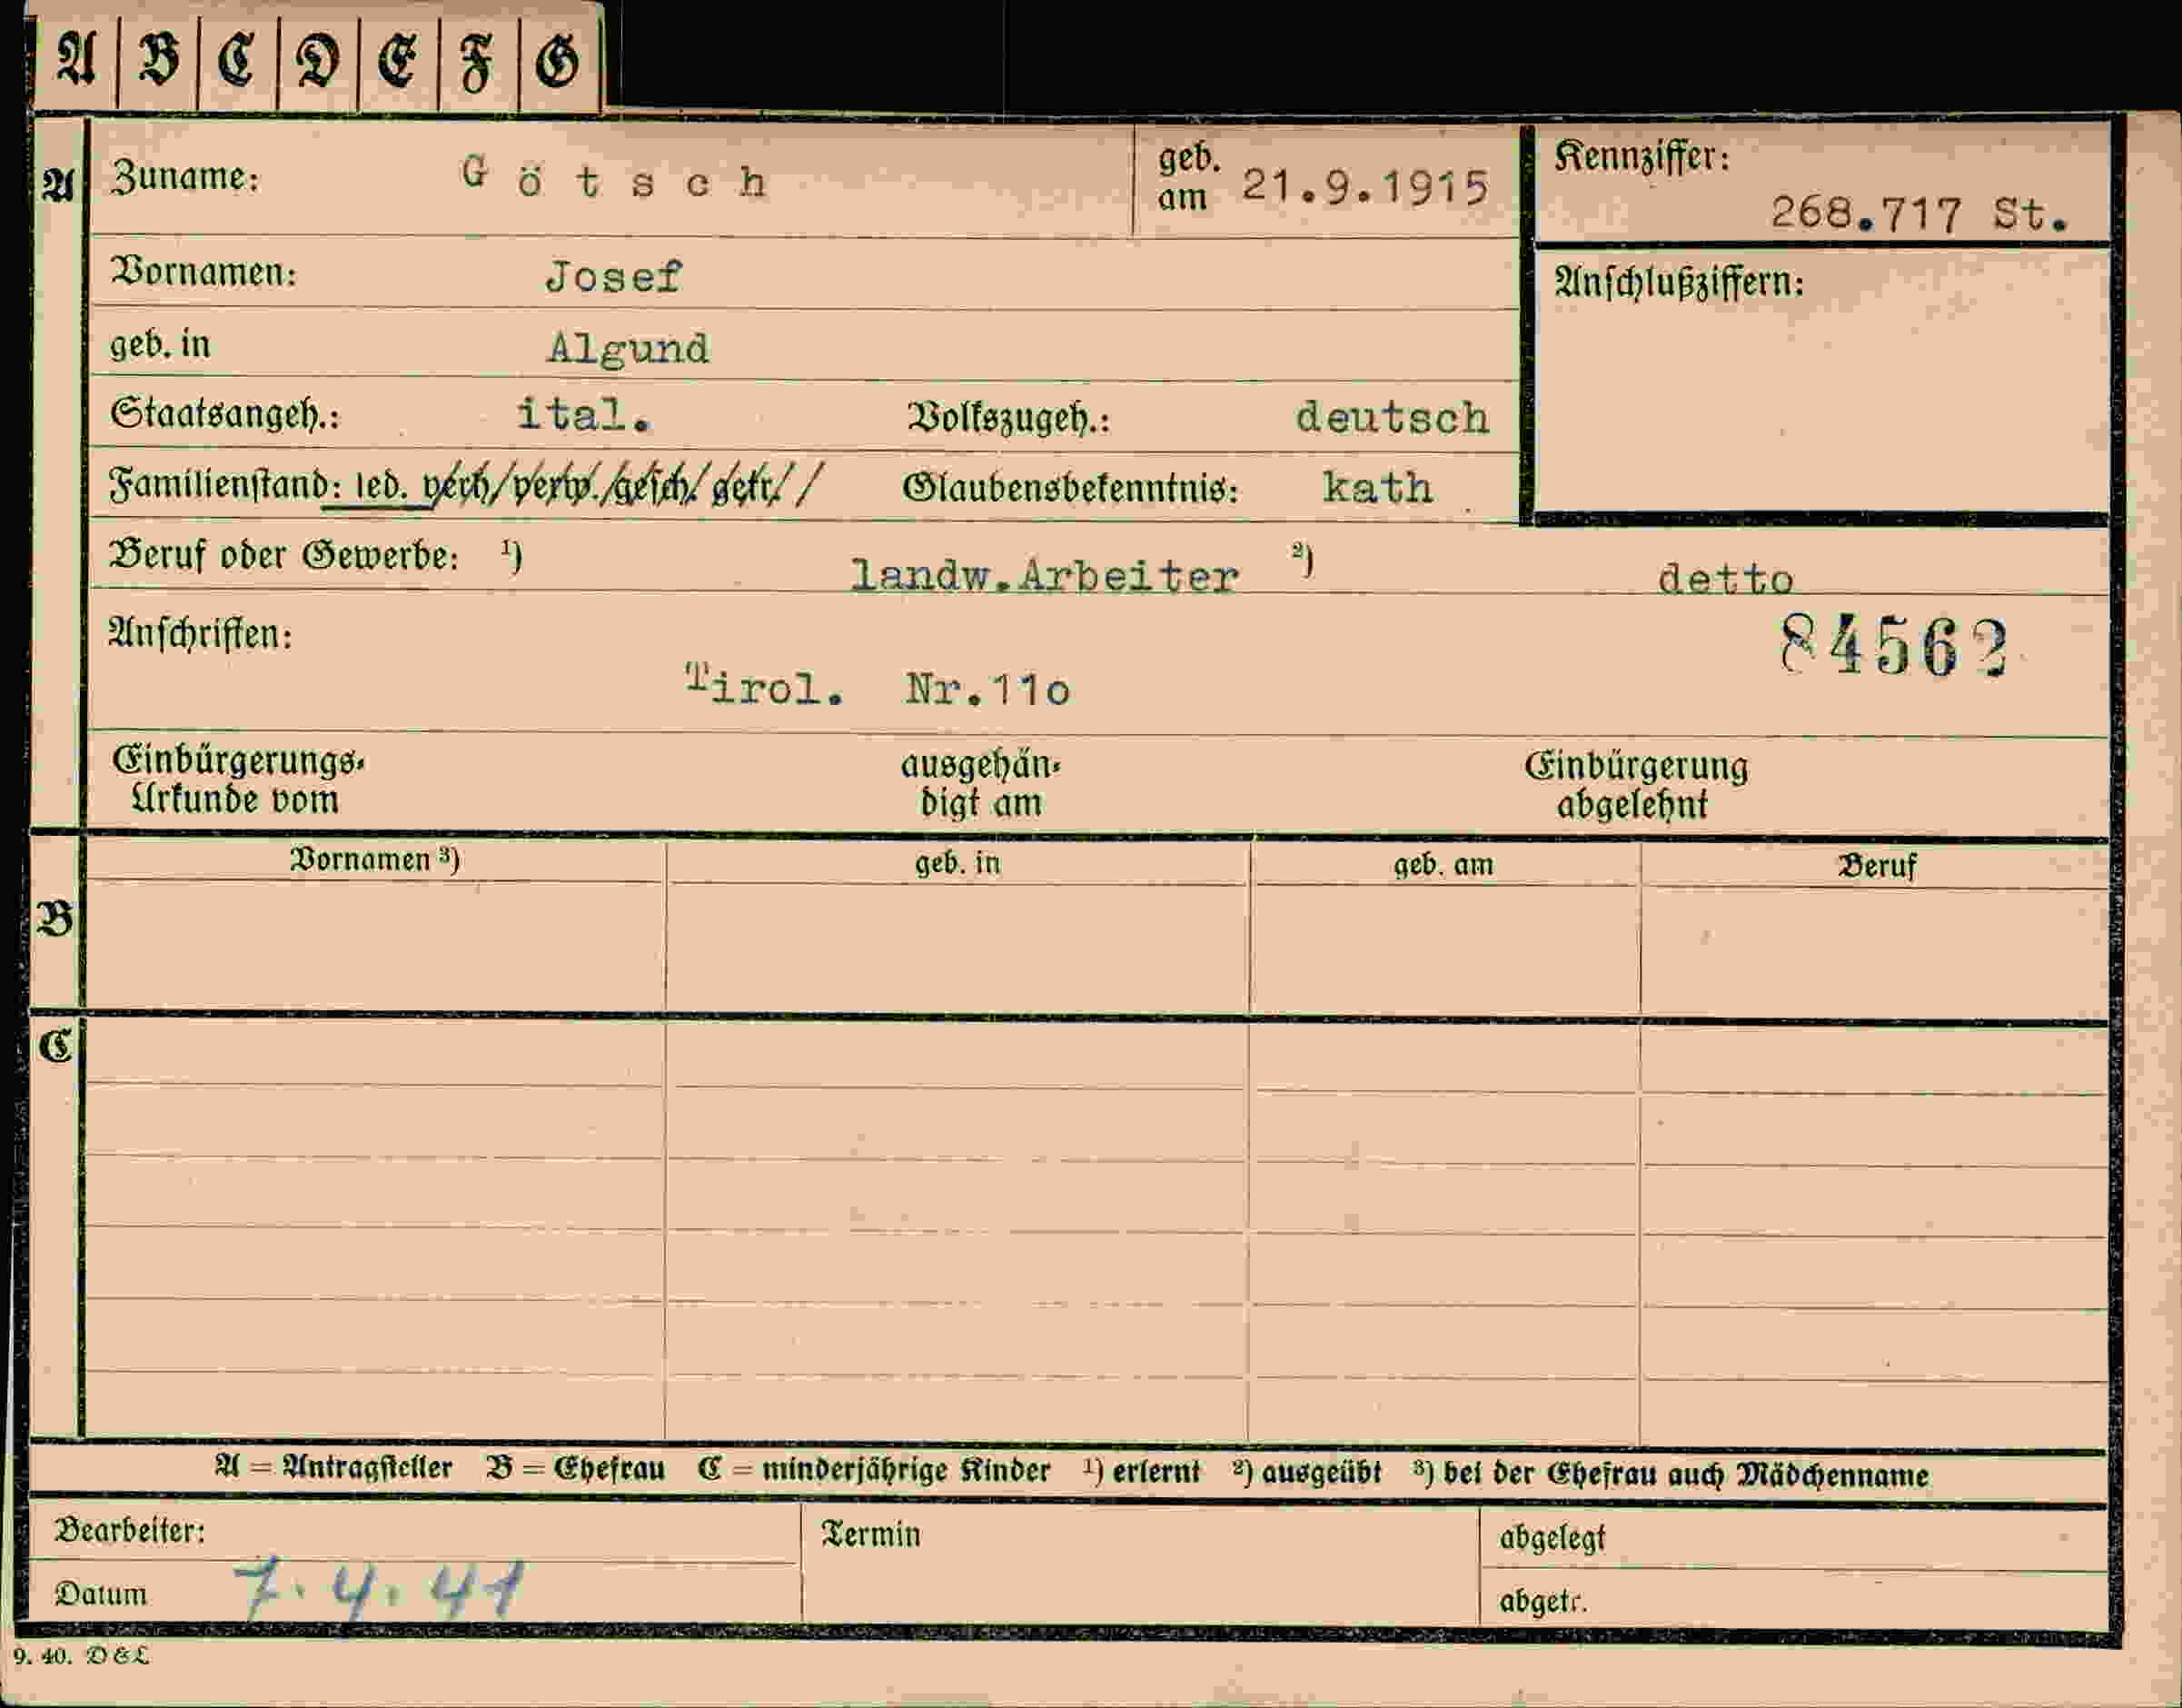 A B C D E F G
A Zuname: Götsch geb. am 21.9.1915 Kennziffer: 268.717 St.
Vornamen: Josef Anschlußziffern:
geb. in Algund
Staatsangeh.: ital. Volkszugeh.: deutsch
Familienstand: led. verh/verw./gesch/getr// Glaubensbekenntnis: kath
Beruf oder Gewerbe: ¹) landw.Arbeiter ²) detto
Anschriften: 84562
Tirol. Nr.11o
Einbürgerungs- ausgehän- Einbürgerung
Urkunde vom digt am abgelehnt
B Vornamen ³) geb. in geb. am Beruf
C
A = Antragsteller B = Ehefrau C = minderjährige Kinder ¹) erlernt ²) ausgeübt ³) bei der Ehefrau auch Mädchenname
Bearbeiter: Termin abgelegt
Datum 7.4.41 abgetr.
9. 40. D & L